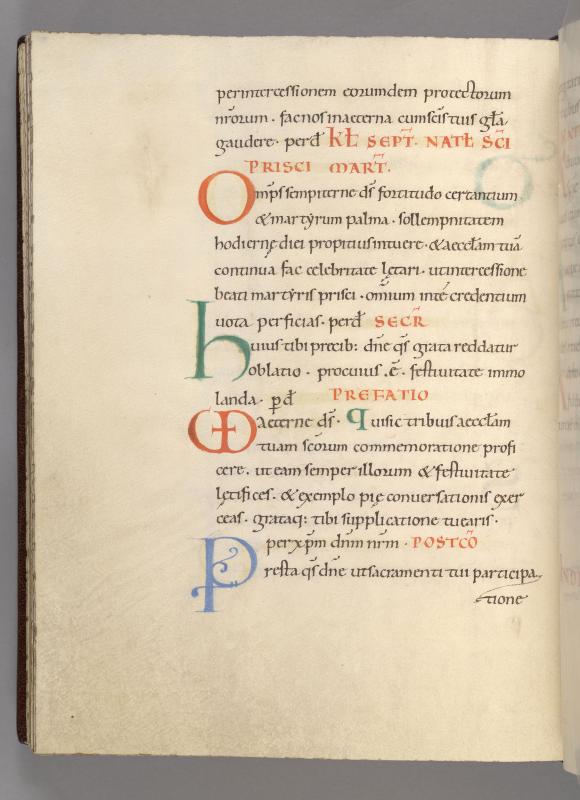 per intercessionem eorumdem protectorum
nr̄orum · fac nos in aeterna cum sc̄is tuis gl̄a
gaudere · per d̄ KƚƖ SEPT̄ · NATƚ SC̄I
PRISCI MART̄ ·
Omp̄s sempiterne ds̄ fortitudo certantium
& martyrum palma · sollempnitatem
hodiernę diei propitius intuere · & aeccl̄am tuā
continua fac celebritate lętari · ut intercessione
beati martyris prisci · om̄ium in te credentium
uota perficias · per d̄ SECR̄
huius tibi precib: dn̄e qs̄ grata reddatur
oblatio · pro cuius · ē · festiuitate immo
landa · ꝑ d̄ PREFATIO
VD aeterne ds̄ · qui sic tribuis aeccl̄am
tuam sc̄orum commemoratione profi
cere · ut eam semper illorum & festiuitate
lętifices · & exemplo pię conuersationis exer
ceas · grataq: tibi supplicatione tuearis ·
per xp̄m dn̄m nr̄m · POSTCŌ
Presta qs̄ dn̄e ut sacramenti tui participa
tione